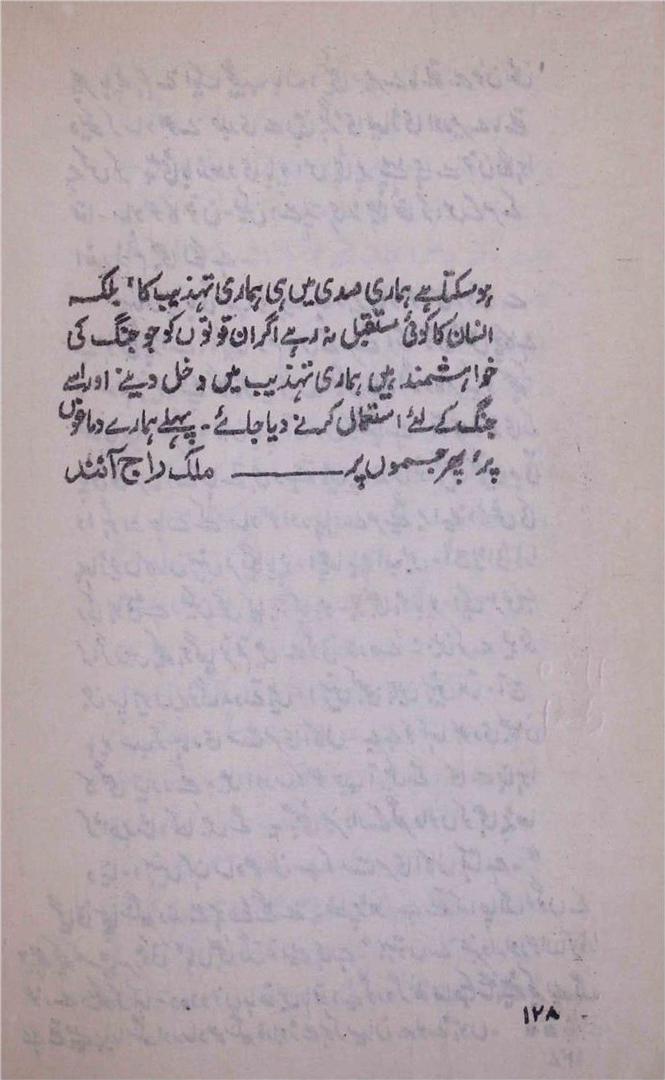 ہو سکتا ہے ہماری صدی میں ہی ہماری تہذیب کا، بلکہ
انسان کا کوئی مستقبل نہ رہے اگر ان قوتوں کو جو جنگ کی
خواہشمند ہیں ہماری تہذیب میں دخل دینے اور اسے
جنگ کے لئے استعمال کرنے دیا جائے۔ پہلے ہمارے دماغوں
پر، پھر جسموں پر ــــــــ ملک راج آنند
۱۲۸